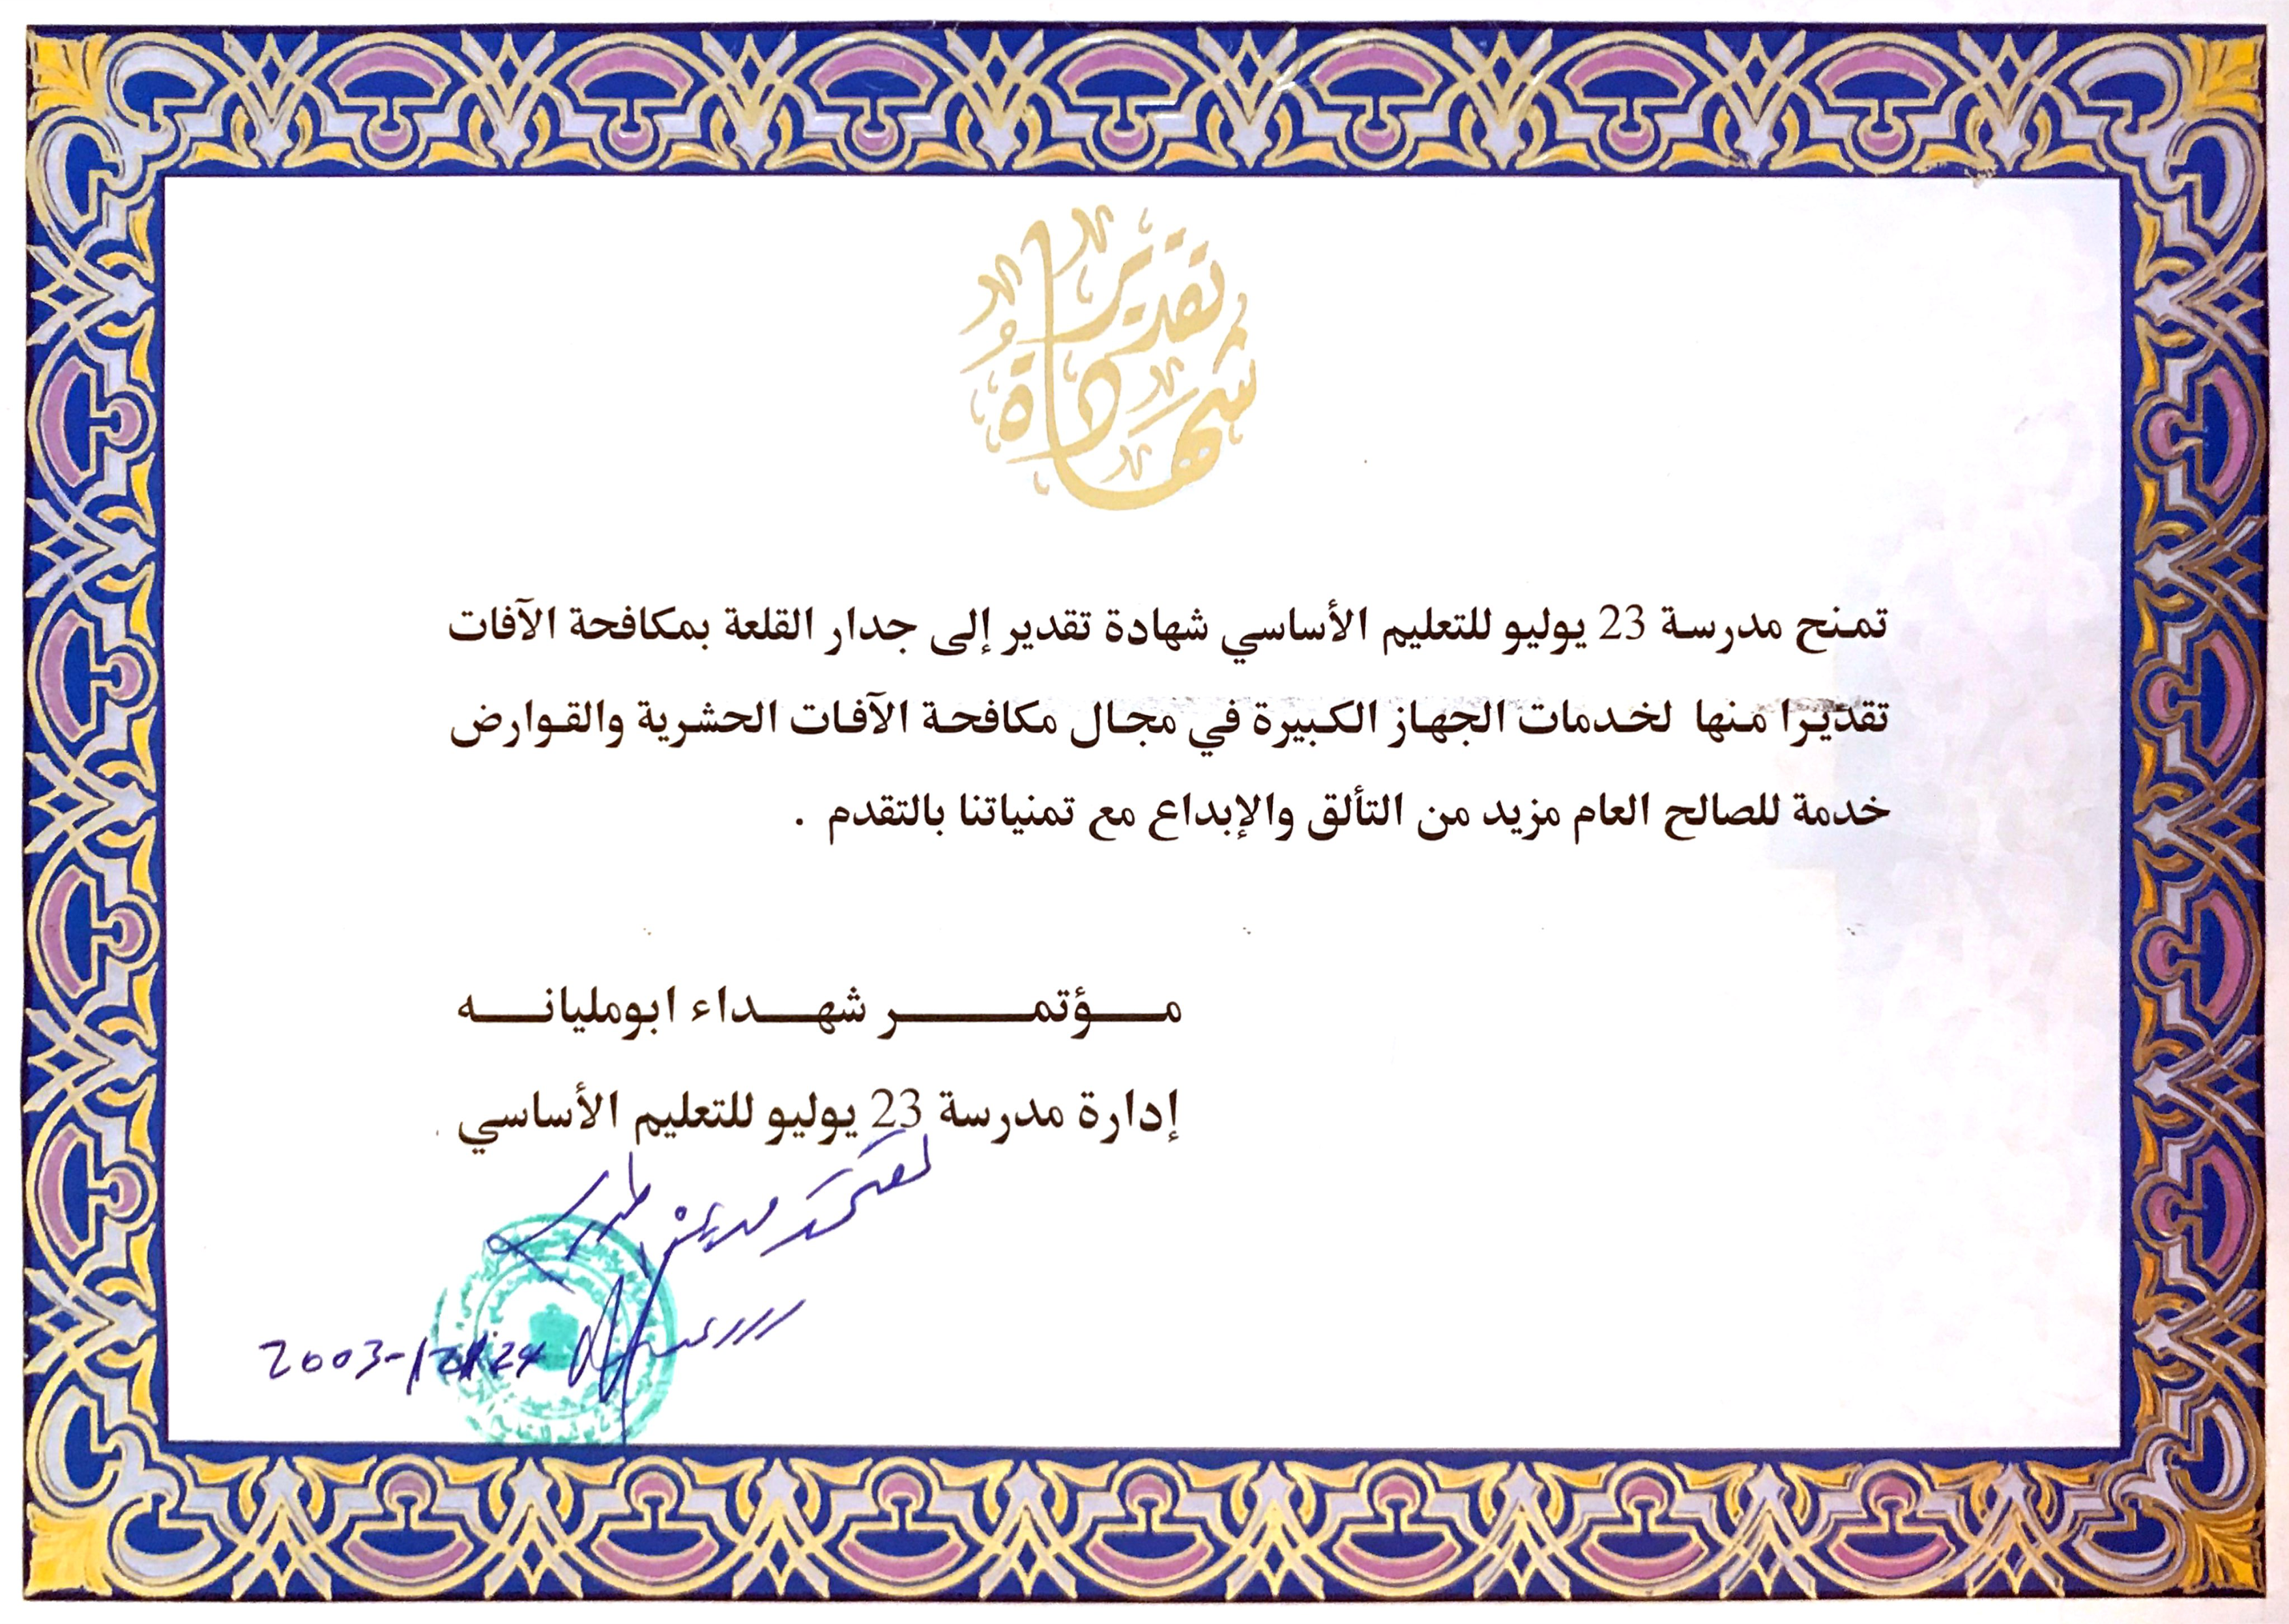 شهادة تقدير
تمنح مدرسة 23 يوليو للتعليم الأساسي شهادة تقدير إلى جدار القلعة بمكافحة الآفات
تقديرا منها لخدمات الجهاز الكبيرة في مجال مكافحة الآفات الحشرية والقوارض
خدمة للصالح العام مزيد من التألق والإبداع مع تمنياتنا بالتقدم .
مـــؤتمـــــــــر شهــــداء ابومليانــــه
إدارة مدرسة 23 يوليو للتعليم الأساسي